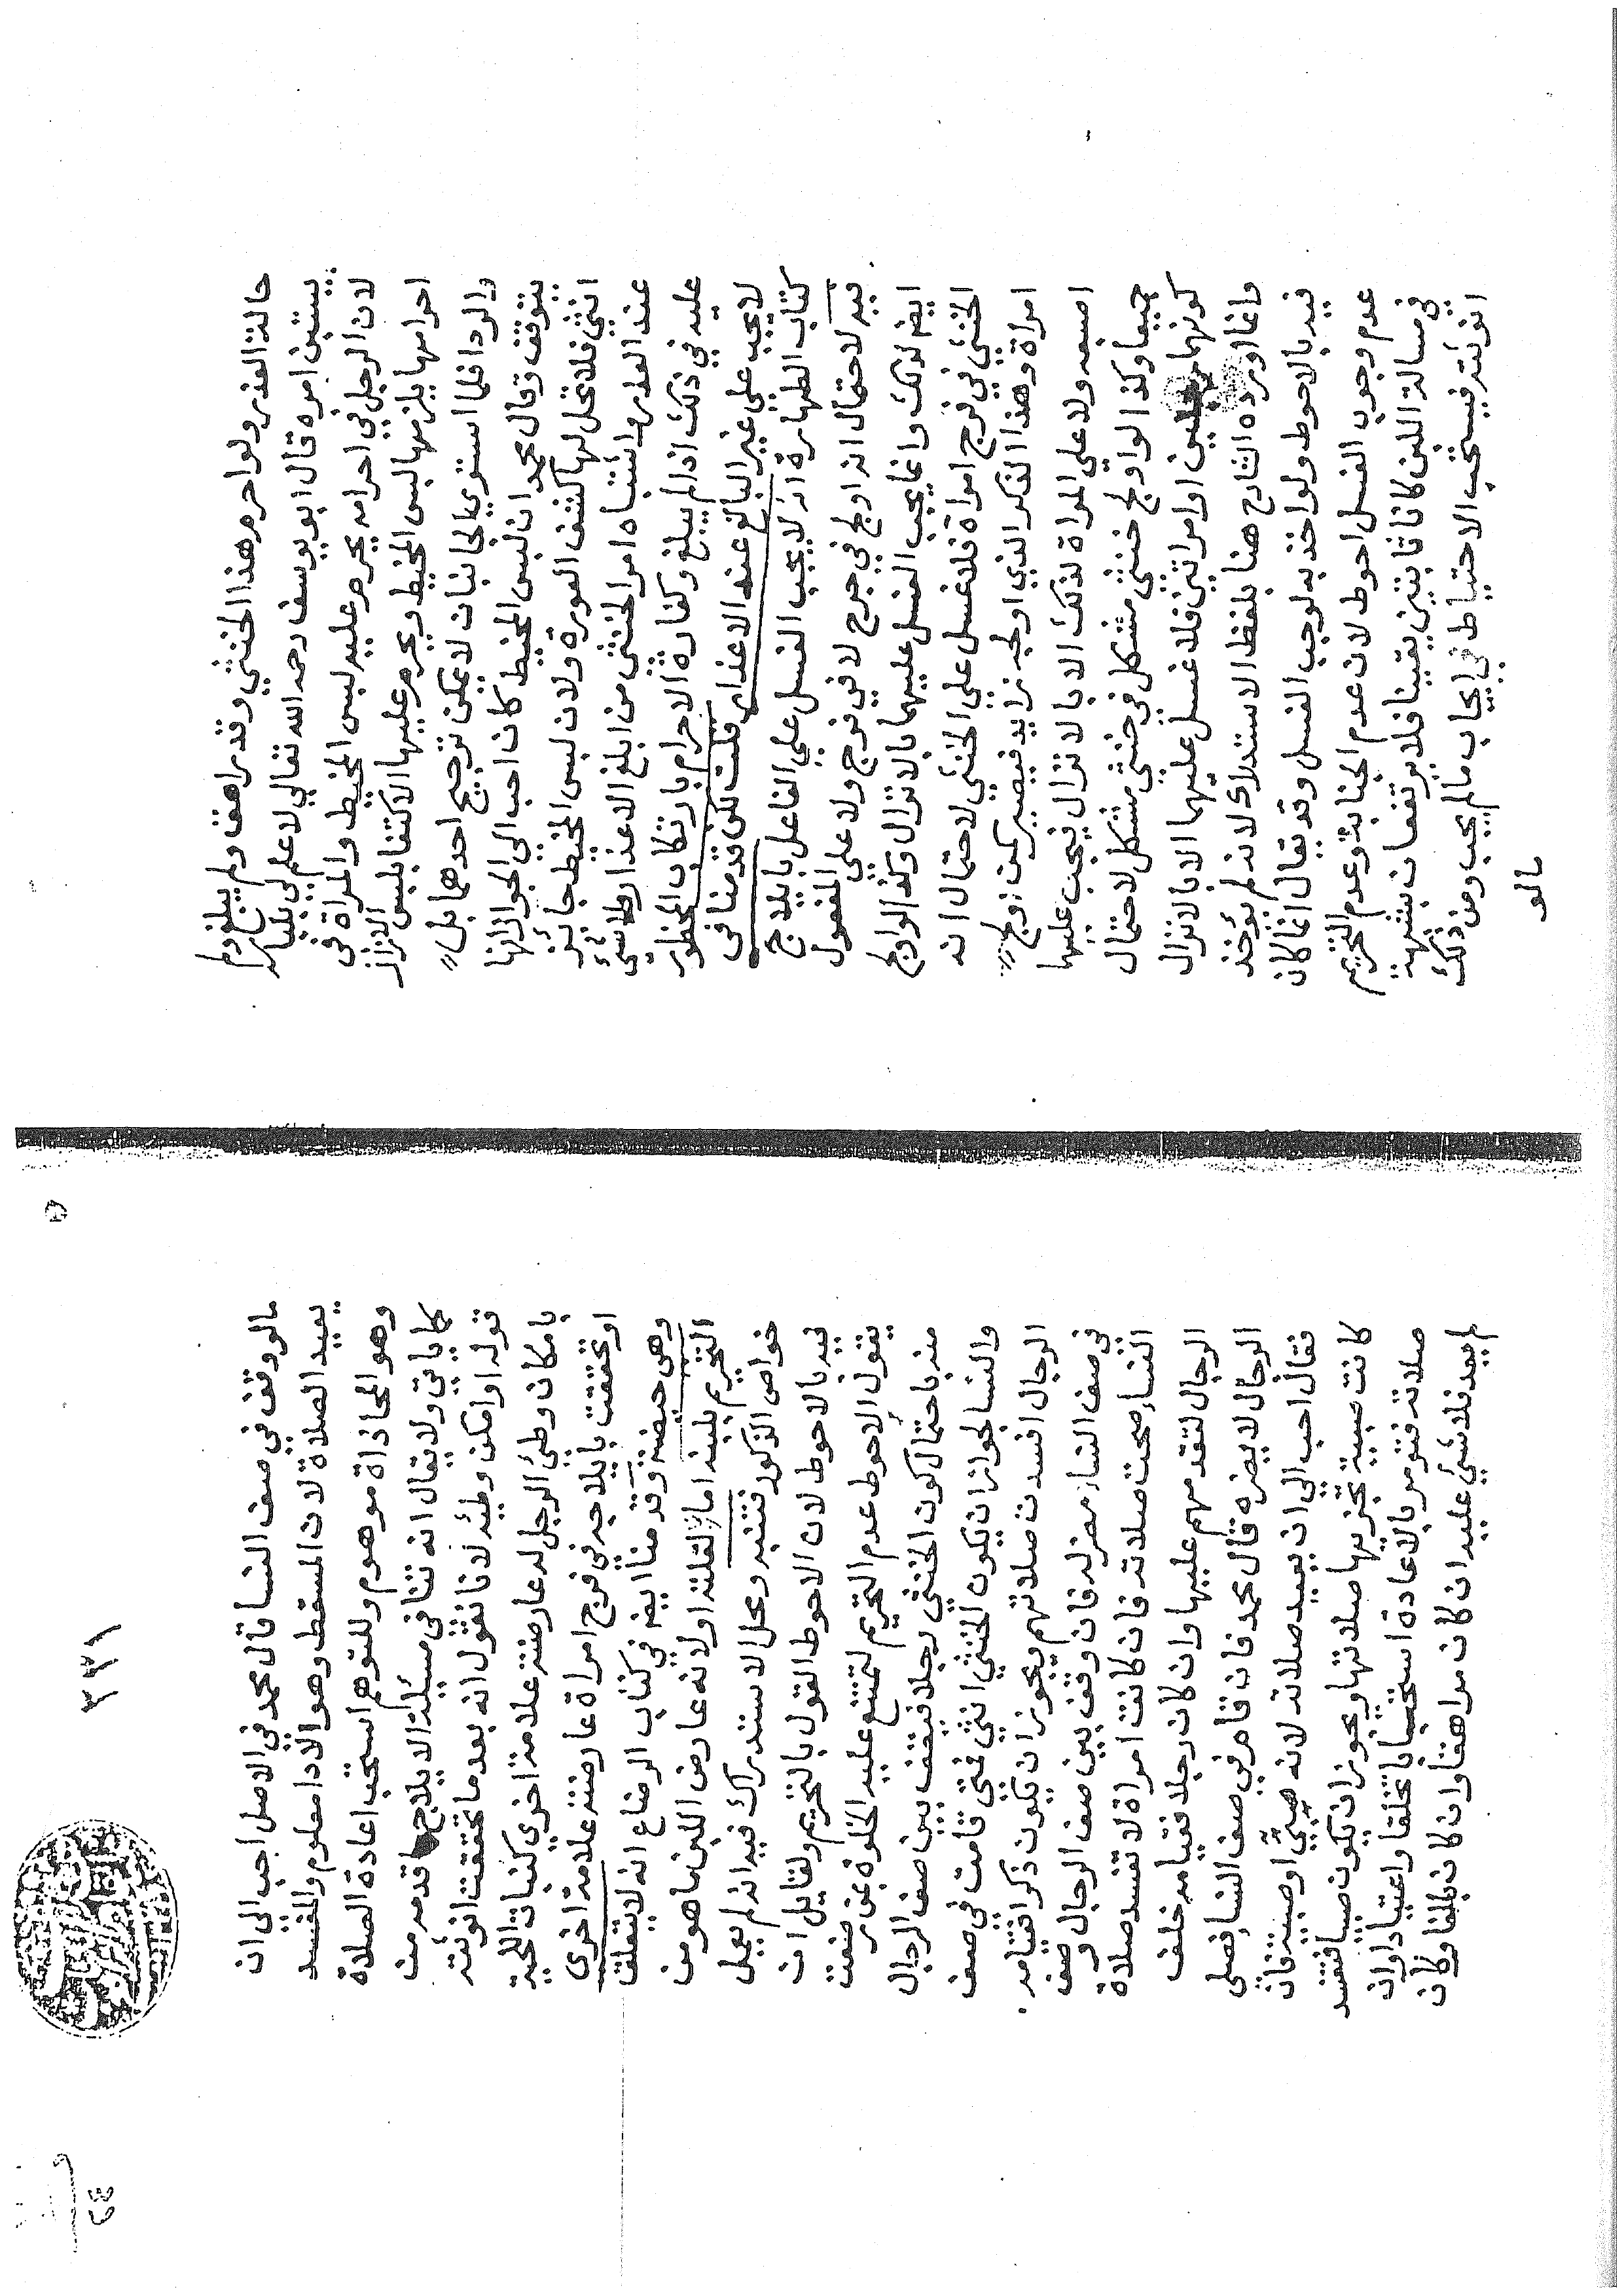 حالة العذر ولو احرم هذا الخنثي وقد راهق ولم يبلغ ولم
يستبن امره قال ابو يوسف رحمه الله تعالي لا علم لي بلباسه
لان الرجل في احرامه يحرم عليه لبس المخيط والمراة في
احرامها يلزمها لبس المخيط ويحرم عليها الاكتفا بلبس الازار
والردا فلما استوي الجانبان لا يمكن ترجيح احدهما بل
يتوقف وقال محمد ان لبس المخيط كان احب الي لجواز انها
انثي فلا تحل لها كشف العورة ولان لبس المخيط جائز
عند العذر واشتباه امر الخنثي من ابلغ الاعذار ولا شئ
عليه في ذلك اذا لم يبلغ وكفارة الاحرام بارتكاب المحظور
لا يجب علي غير البالغ عند الاعذار قلت لكن قدمنا في
كتاب الطهارة انه لا يجب الغسل علي الفاعل بايلاج
فيه لاحتمال انه اولج في جرح لا في فرج ولا علي المفعول
ايضا لذلك وانما يجب الغسل عليهما بالانزال وكذا لو اولج
الخنثي في فرج امراة فلا غسل علي الخنثي لاحتمال انه
امراة وهذا الذكر الذي اولجه زايد فيصير كمن اولج
اصبعه ولا علي المراة لذلك الا بالانزال فيجب عليها
جميعا وكذا لو اولج خنثي مشكل في خنثي مشكل لاحتمال
كونهما رجلين او امراتين فلا غسل عليهما الا بالانزال
وانما اورده الشارح هنا بلفظ الاستدراك لانه لم يؤخذ
فيه بالاحوط ولو اخذ به لوجب الغسل وقد يقال انما كان
عدم وجوب الغسل احوط لان عدم الجنابة وعدم التحريم
في مسالة اللبن كانا ثابتين يقينا فلا يرتفعان بشبهة
انوثته فيستحب الاحتياط في ايجاب مالم يجب ومن ذلك
مالو
٣٣١
مالو وقف في صف النسا قال محمد في الاصل احب الي ان
يعيد الصلاة لان المسقط وهو الادا معلوم والمفسد
وهو المحاذاة موهوم وللتوهم استحب اعادة الصلاة
كما ياتي ولا يقال انه تنافي مسئلة الايلاج قدمت
قوله او امكن وطئه لانا نقول انه بعد ما تحققت انوثته
بامكان وطئ الرجل له عارضته علامة اخري كنبات اللحية
او تحققت بايلاجه في فرج امراة عارضته علامة اخري
وهي حيضه وقدمنا ايضا في كتاب الرضاع انه لا يتعلق
التحريم بلبنه اما لقلته او لانه عارض اللبن ما هو من
خواص الذكور فتنبه ومحل الاستدراك فيه انه لم يعمل
فيه بالاحوط لان الاحوط القول بالتحريم ولقايل ان
يقول الاحوط عدم التحريم لتمتنع عليه الخلوة بمن رضعت
منه باحتمال كون الخنثي رجلا فيقف بين صف الرجال
والنسا لجواز ان يكون الخنثي انثي فمتي قامت في صف
الرجال افسدت صلاتهم ويجوز ان يكون ذكرا فقيامه
في صف النساء مضر له فان وقف بين صف الرجال وصف
النساء صحت صلاته فان كانت امراة لا تفسد صلاة
الرجال لتقدمهم عليها وان كان رجلا فقيامه خلف
الرجال لا يضره قال محمد فان قام في صف النساء فصلي
فقال احب الي ان يعيد صلاته لانه صبي او صبية فان
كانت صبية تجزيها صلاتها ويجوز ان يكون صبيا فتفسد
صلاته فتومر بالاعادة استحبابا تخلقا واعتيادا وان
لم يعد فلا شئ عليه ان كان مراهقا وان كان بالغا وكان